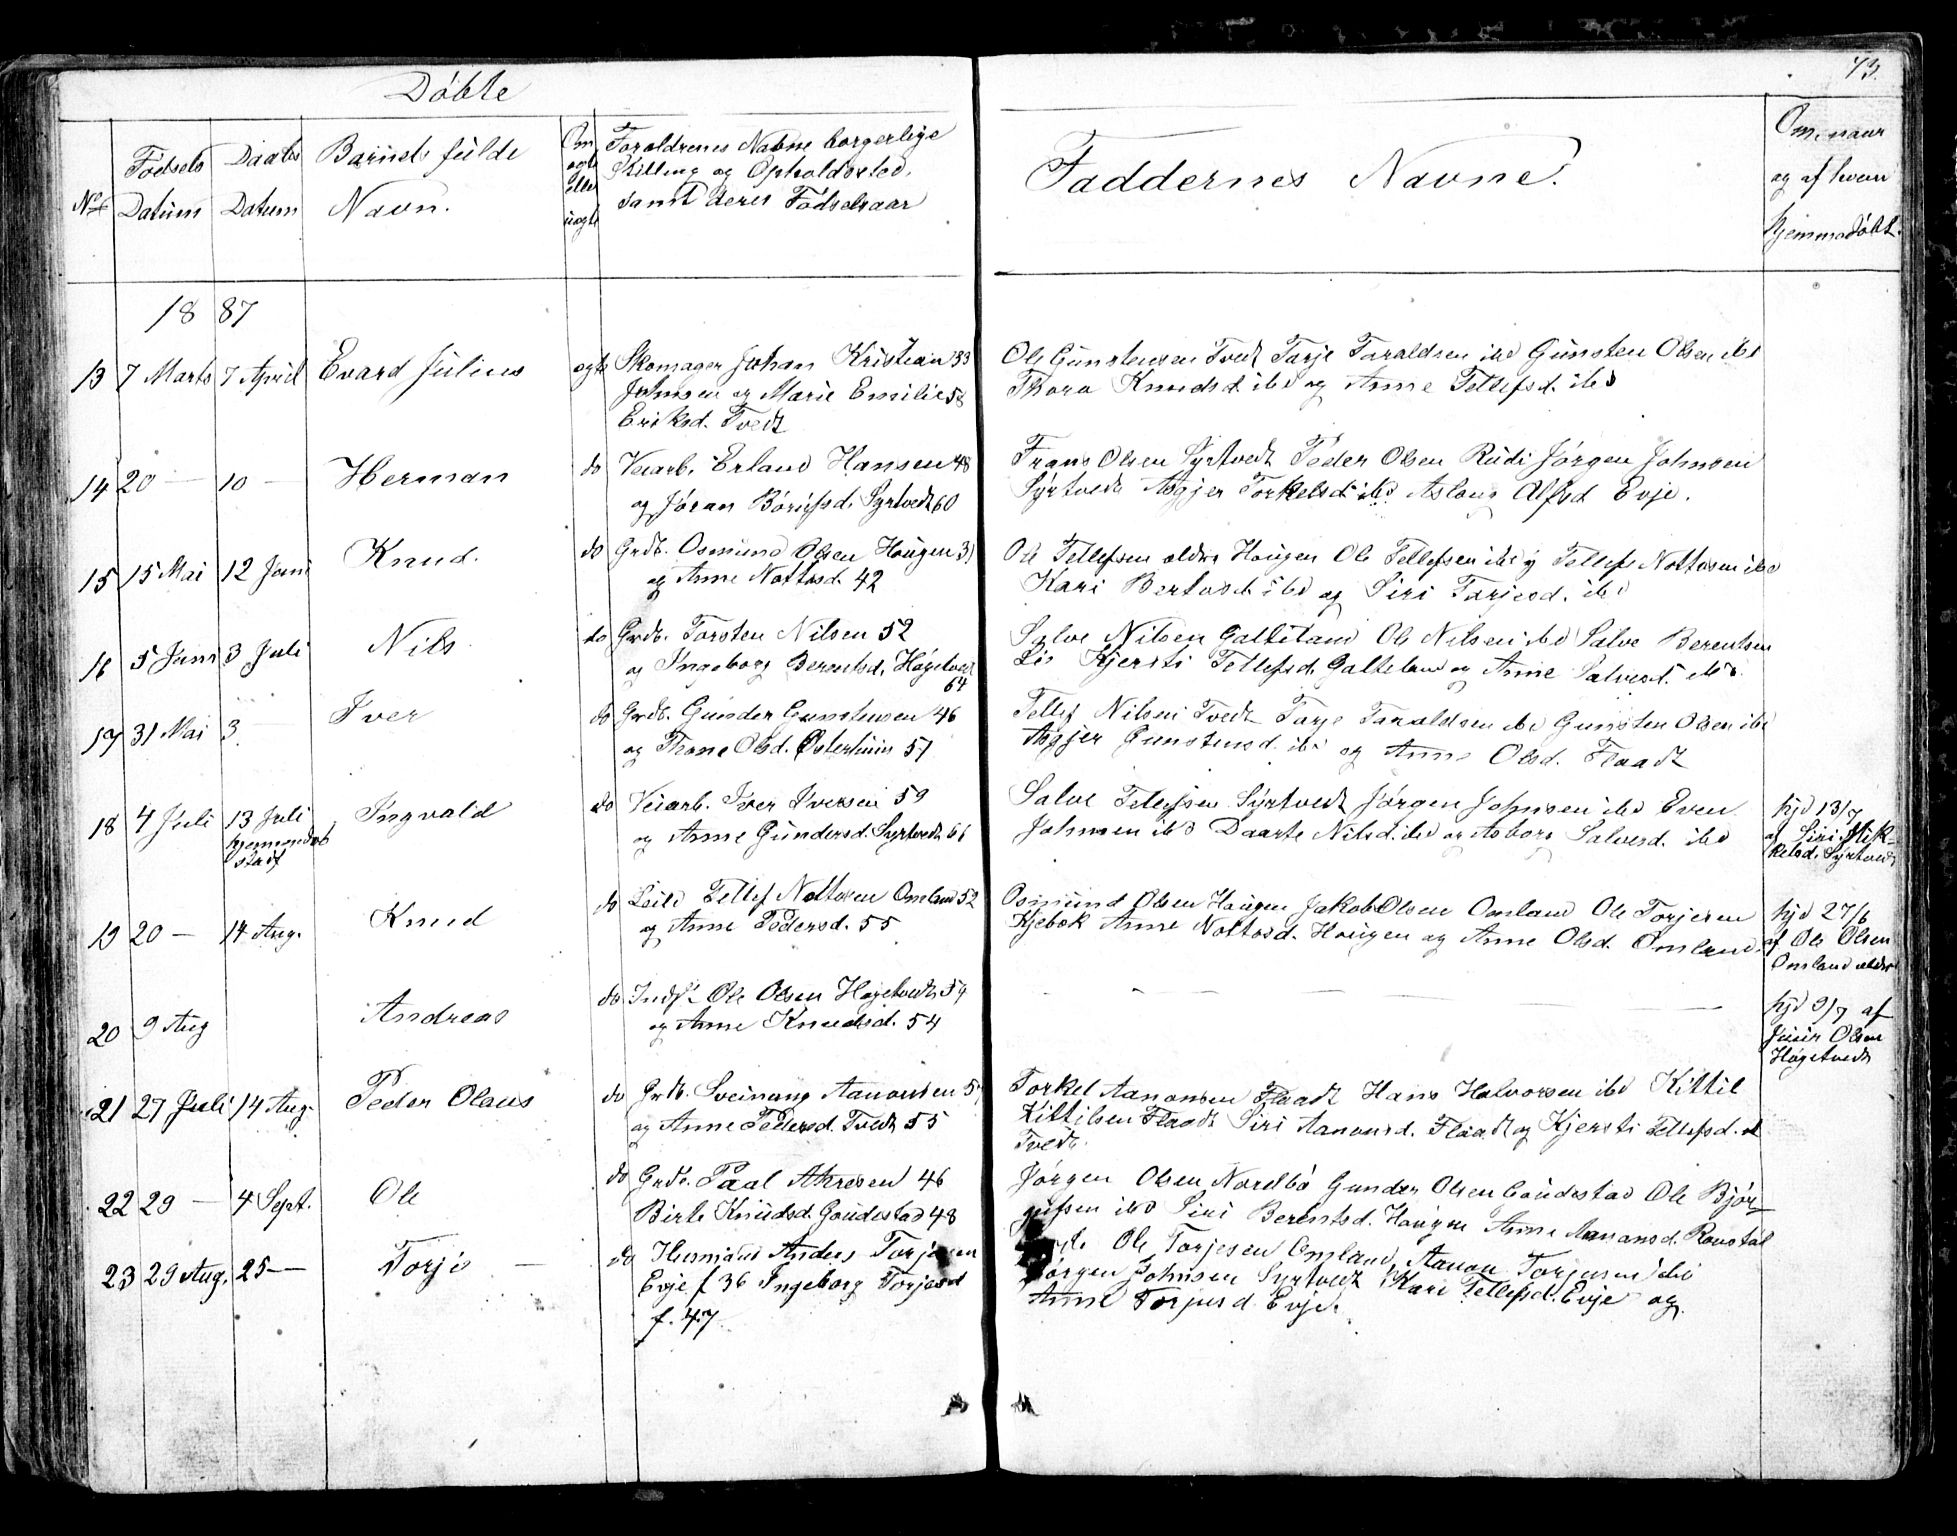 Döbte
73.
No
Födsels Datum
Daabs Datum
Barnets fulde Navn.
Om ægte eller uægte
Foraldrenes Navne borgerlige
Stilling og Opholdssted.
samt deres Födselsaar
Faddernes Navne.
Om, naar
og af hvem
hjemmedöbt.
1887
13 7 Marts 7 April Evard Julius ægte Skomager Johan Kristian 33
Johnsen og Marie Emilie 58
Eriksd. Tvedt
Ole Gunstensen Tvedt Tarje Taraldsen ibd Gunsten Olsen ibd
Thora Knudsd. ibd og Anne Tellefsd. ibd
14 20 — 10 — Herman do Veiarb. Erland Hansen 48
og Jöran Syrtvedt 60
Frans Olsen Syrtvedt Peder Olsen Rudi Jörgen Johnsen
Syrtvedt Asgjer Torkelsd ibd Aslaug Alfsd Evje.
15 15 Mai 12 Juni Knud. do Grdb. Osmund Olsen Hougen 31
og Anne Nottosd. 42
Ole Tellefsen ældre Hougen Ole Tellefsen ibd og Tellef Nottosen ibd
Kari Bertosd. ibd og Siri Tarjesd. ibd
16 5 Juni 3 Juli Nils do Grdb. Torsten Nilsen 52
og Ingeborg Berentsd. Högetvedt
64
Salve Nilsen Galteland Ole Nilsen ibd Salve Berentsen
Lis Kjersti Tellefsd. Galteland og Anne Salvesd. ibd.
17 31 Mai 3 — Iver do Grdb. Gunder Gunstensen 46
og Thone Olsd. 57
Tellef Nilsen Tvedt Tarje Taraldsen ibd Gunsten Olsen ibd
Asgjer Gunstensd. ibd og Anne Olsd. Flaadt
18 4 Juli 13 Juli Ingvald do Veiarb. Iver Iversen 59
og Anne Gundersd. Syrtvedt 66
Salve Tellefsen Syrtvedt Jörgen Johnsen ibd Even
Johnsen ibd Daarte Nilsd. ibd og Asborg Salvesd. ibd
hjd 13/7
af Siri Mik-
kelsd. Syrtvedt
19 20 — 14 Aug. Knud do Leil. Tellef Nottosen Omland 52
og Anne Pedersd. 55
Osmund Olsen Hougen Jakob Olsen Omland Ole Torjesen
Kjebok Anne Nottosd. Hougen og Anne Olsd. Omland.
hjd 27/6
af Ole Olsen
Omland ældre
20 9 Aug Andreas do Indf. Ole Olsen Högetvedt 59
og Anne Knudsd. 54
— — — —
hjd 9/7 af
Olsen
Högetvedt
21 27 Juli 14 Aug. Peder Olaus do Grdb. Sveinung Aanonsen 57
og Anne Pedersd. Tvedt 55
Torkel Aanonsen Flaadt Hans Halvorsen ibd Kittil
Kittilsen Flaadt Siri Aanonsd. Flaadt og Kjersti Tellefsd.
Tvedt.
22 29 — 4 Sept. Ole do Grdb. Paal Akresen 46
Birte Knudsd. Goudestad 48
Jörgen Olsen Nordbö Gunder Olsen Goudestad Ole Björ-
gufsen ibd Siri Berentsd. Hougen Anne Aanonsd.
23 29 Aug. 25 — Torje — do Husmand Anders Torjesen
Evje f 36 Ingeborg Torjesd
f. 47
Ole Torjesen Omland, Aanon Torjesen ibd
Jörgen Johnsen Syrtvedt Kari Tellefsd. Evje og
Anne Torjusd. Evje.